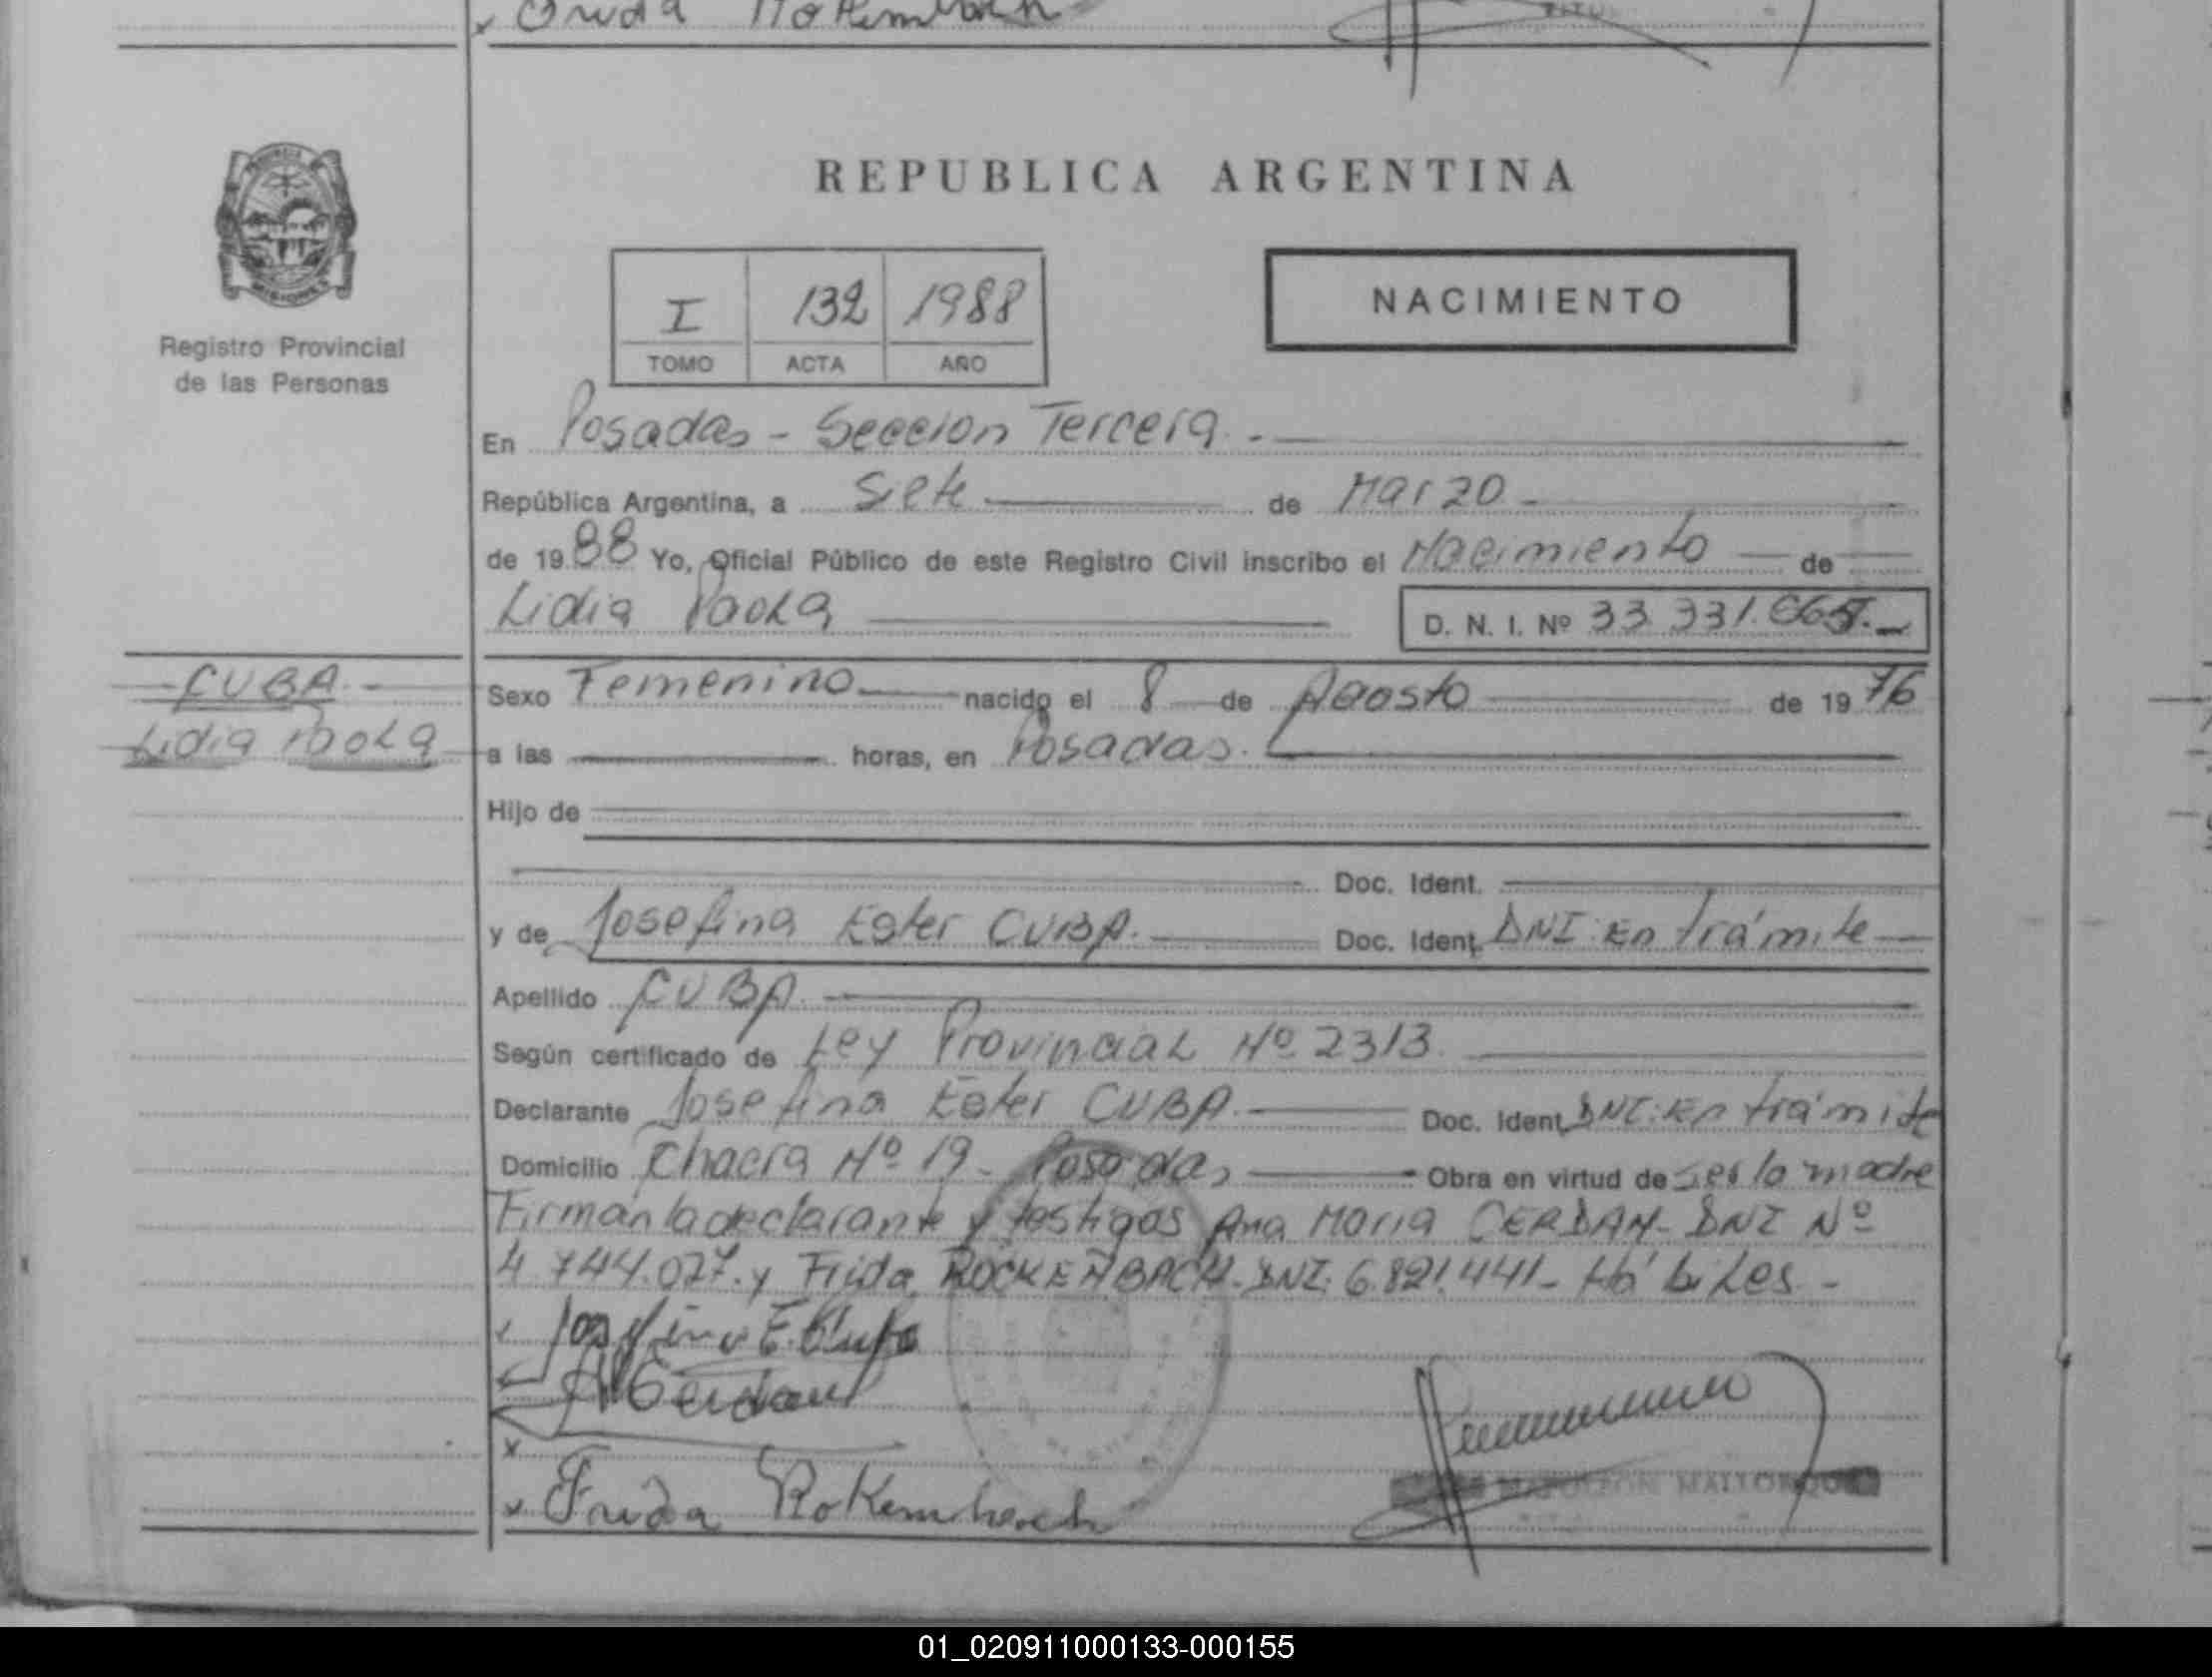 Frida Rokembach
REPUBLICA ARGENTINA
MISIONES
Registro Provincial
de las Personas
I 132 1988
TOMO ACTA AÑO
NACIMIENTO
En Posadas - Seccion Tercera.-
República Argentina, a Siete de Marzo
de 1988 Yo, Oficial Público de este Registro Civil inscribo el Nacimiento de
Lidia Paola D. N. I. Nº 33 331.
CUBA.-
Lidia Paola
Sexo Femenino nacido el 8 de Agosto de 1976
a las horas, en Posadas.
Hijo de
Doc. Ident.
y de Josefina Ester CUBA. Doc. Ident. DNI: En trámite
Apellido CUBA.
Según certificado de Ley Provincial Nº 2313.
Declarante Josefina Ester CUBA. Doc. Ident. DNI: En trámite
Domicilio Chacra Nº 19 - Posadas Obra en virtud de ser la madre
Firman la declarante y testigos Ana Maria CERDAN - DNI Nº
4 744.027. y Frida ROCKENBACH - DNI: 6.821.441 - Hábiles -
x Josefina E. Cuba
A M Cerdan
x
x Frida Rokembach
NAPOLEON MALLORQUIN
01_020911000133-000155